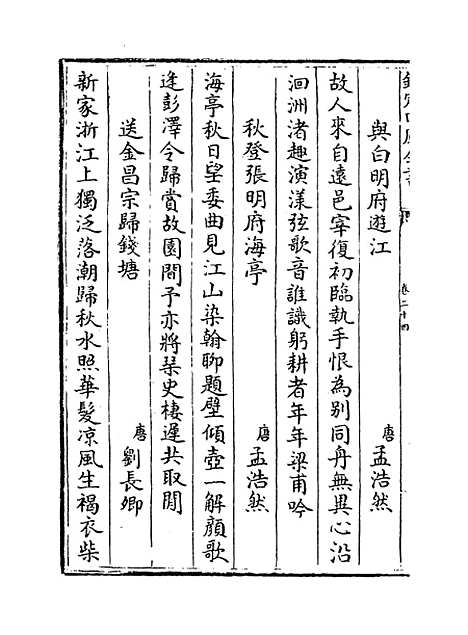 欽定四庫全書
卷二十四
與白明府遊江
唐 孟浩然
故人來自遠邑宰復初臨執手恨為别同舟無異心沿
洄洲渚趣演漾弦歌音誰識躬耕者年年梁甫吟
秋登張明府海亭
唐 孟浩然
海亭秋日望委曲見江山染翰聊題壁傾壺一解顔歌
逢彭澤令歸賞故園間予亦將琴史棲遲共取閒
送金昌宗歸錢塘
唐 劉長卿
新家浙江上獨泛落潮歸秋水照華髮凉風生褐衣柴